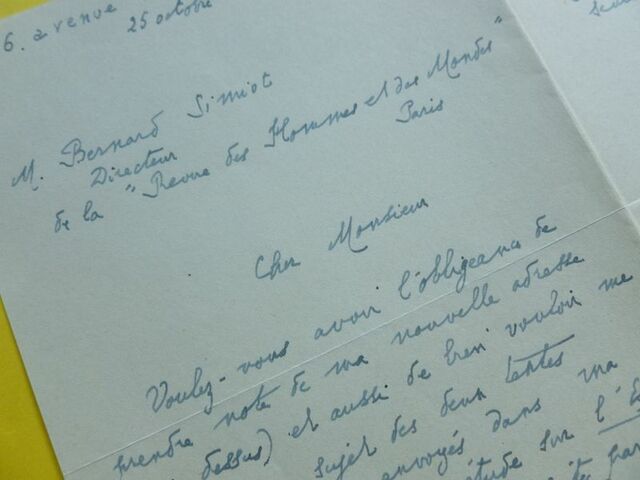 6. avenue
25 octobre
M. Bernard Simiot
Directeur
de la "Revue des Hommes et des Mondes"
Paris
Cher Monsieur
Voulez-vous avoir l'obligeance de
prendre note de ma nouvelle adresse
dessus) et aussi de bien vouloir me
sujet des deux textes
envoyés dans ma
sur l'